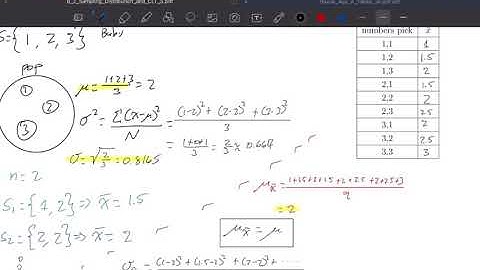 B_2_Sampling_Distribution_and_CLT_S.pdf
S={1, 2, 3} Baby
pop
1
2
3
μ = 1+2+3 / 3 = 2
σ² = Σ(x-μ)² / N = (1-2)² + (2-2)² + (3-2)² / 3
= 1+0+1 / 3 = 2/3 ≈ 0.667
σ = √2/3 = 0.8165
n = 2
S₁ = {1, 2} => x̄ = 1.5
S₂ = {2, 2} => x̄ = 2
μx̄ = 1+1.5+2+1.5+2+2.5+2+2.5+3 / 9
= 2
μx̄ = μ
(1-2)² + (1.5-2)² + (2-2)² + ......
numbers pick x̄
1,1 1
1,2 1.5
1,3 2
2,1 1.5
2,2 2
2,3 2.5
3,1 2
3,2 2.5
3,3 3